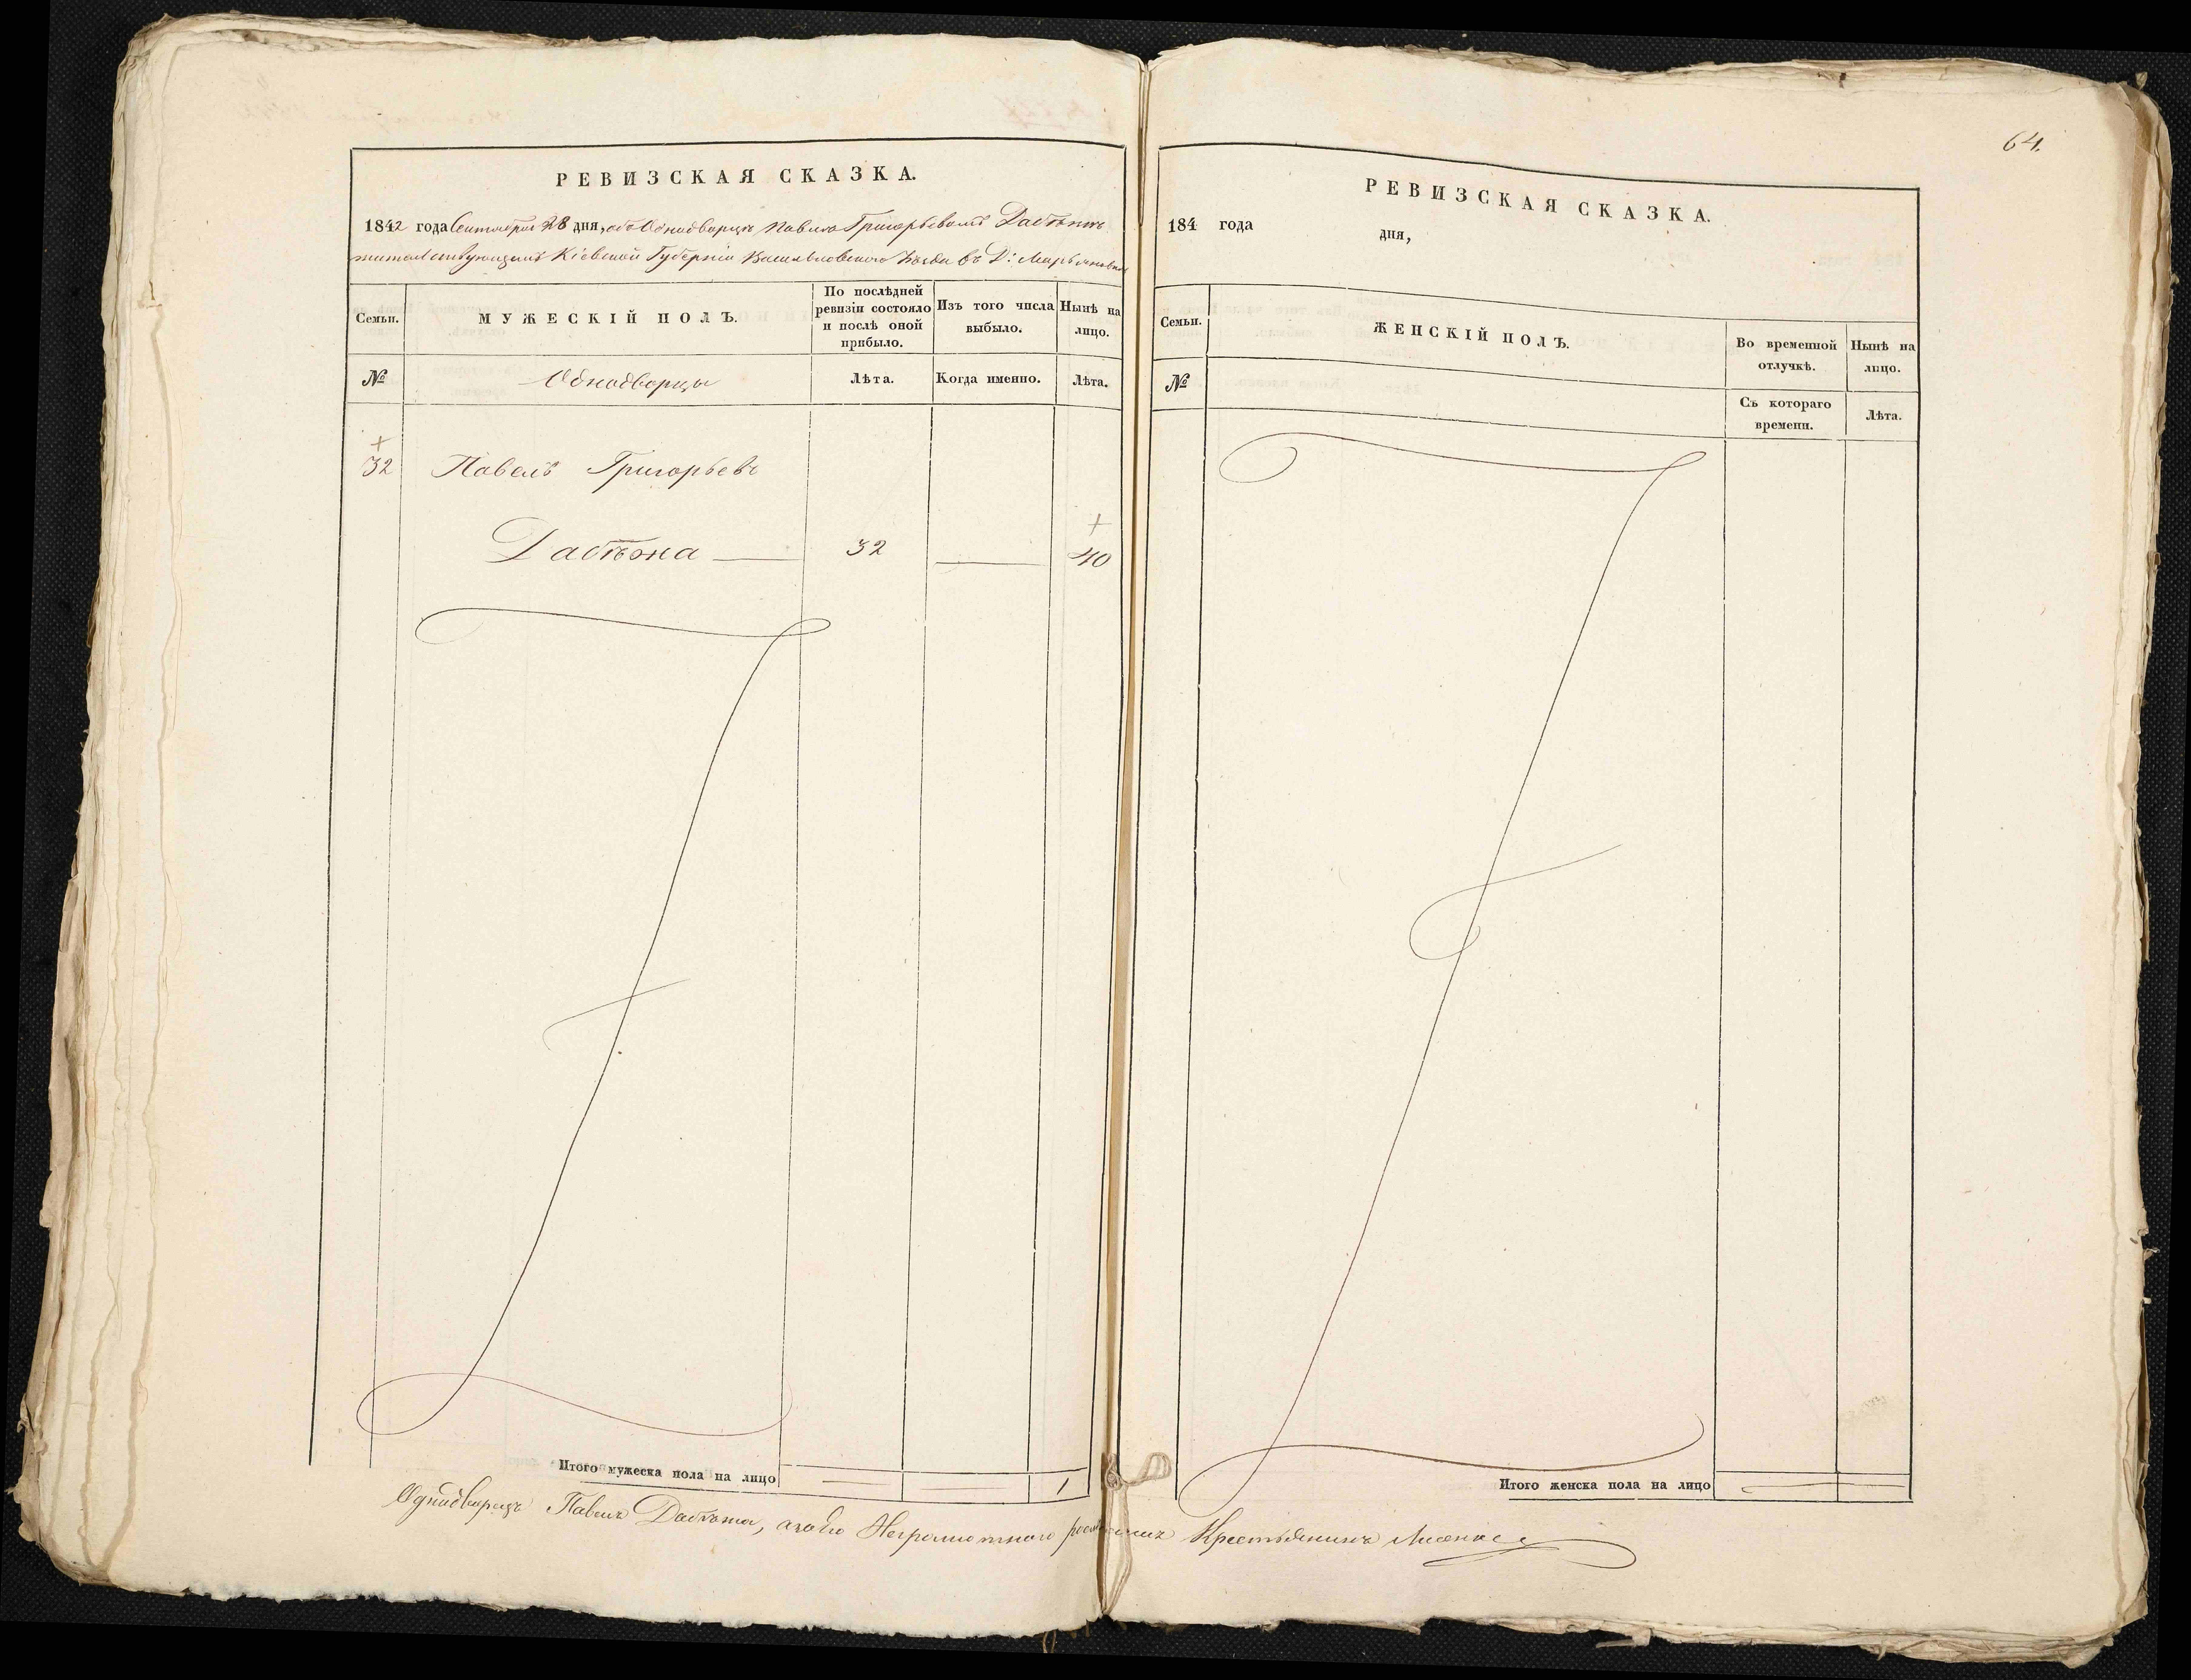 64.
РЕВИЗСКАЯ СКАЗКА.
1842 года Сентября 28 дня, объ Однодворцѣ Павлѣ Григорьевомъ
жительствующимъ Кіевской Губерніи Васильковскаго Уѣзда въ Д: Марьяновкѣ
Семьи.
МУЖЕСКІЙ ПОЛЪ.
По послѣдней ревизіи состояло и послѣ оной прибыло.
Изъ того числа выбыло.
Нынѣ на лицо.
№
Однодворцы
Лѣта.
Когда именно.
Лѣта.
32 Павелъ Григорьевъ
32 40
Итого мужеска пола на лицо 1
РЕВИЗСКАЯ СКАЗКА.
184 года дня,
Семьи.
ЖЕНСКІЙ ПОЛЪ.
Во временной отлучкѣ.
Нынѣ на лицо.
№
Съ котораго времени.
Лѣта.
Итого женска пола на лицо
Однодворецъ Павелъ Неграмотнаго Крестьянинъ